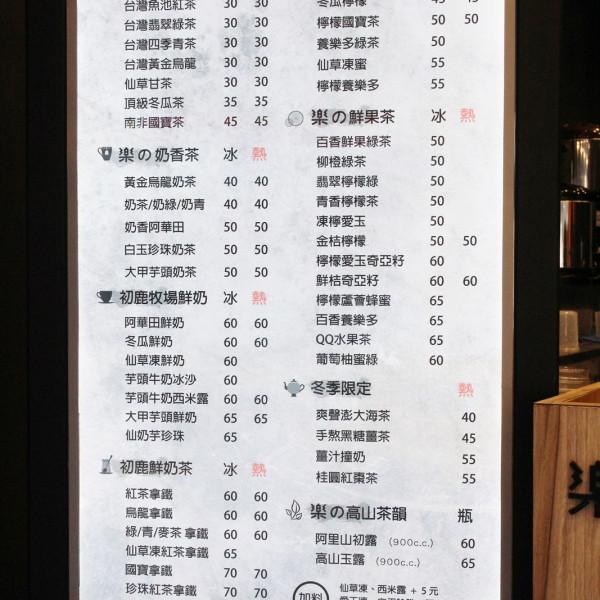 台灣魚池紅茶 30 30
台灣翡翠綠茶 30 30
台灣四季青茶 30 30
台灣黃金烏龍 30 30
仙草甘茶 30 30
頂級冬瓜茶 35 35
南非國寶茶 45 45
楽の奶香茶 冰 熱
黃金烏龍奶茶 40 40
奶茶/奶綠/奶青 40 40
奶香阿華田 50 50
白玉珍珠奶茶 50 50
大甲芋頭奶茶 50 50
初鹿牧場鮮奶 冰 熱
阿華田鮮奶 60 60
冬瓜鮮奶 60 60
仙草凍鮮奶 60
芋頭牛奶冰沙 60
芋頭牛奶西米露 60 60
大甲芋頭鮮奶 65 65
仙奶芋珍珠 65
初鹿鮮奶茶 冰 熱
紅茶拿鐵 60 60
烏龍拿鐵 60 60
綠/青/麥茶 拿鐵 60 60
仙草凍紅茶拿鐵 65
國寶拿鐵 70 70
珍珠紅茶拿鐵 70 70
冬瓜檸檬 45 45
檸檬國寶茶 50 50
養樂多綠茶 50
仙草凍蜜 55
檸檬養樂多 55
楽の鮮果茶 冰 熱
百香鮮果綠茶 50
柳橙綠茶 50
翡翠檸檬綠 50
青香檸檬茶 50
凍檸愛玉 50
金桔檸檬 50 50
檸檬愛玉奇亞籽 60
鮮桔奇亞籽 60 60
檸檬蘆薈蜂蜜 65
百香養樂多 65
QQ水果茶 65
葡萄柚蜜綠 60
冬季限定 熱
爽聲澎大海茶 40
手熬黑糖薑茶 45
薑汁撞奶 55
桂圓紅棗茶 55
楽の高山茶韻 瓶
阿里山初露 (900c.c.) 60
高山玉露 (900c.c.) 65
加料
仙草凍、西米露 + 5元
楽